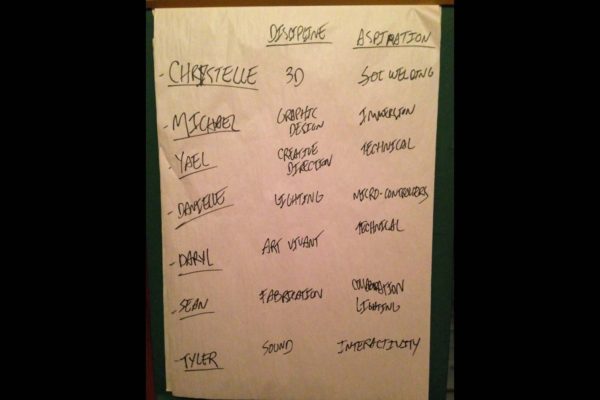 DISCIPLINE ASPIRATION
- CHRISTELLE 3D SOC WELDING
- MICHAEL GRAPHIC DESIGN IMMERSION
- YAEL CREATIVE DIRECTION TECHNICAL
- DANIELLE LIGHTING MICRO-CONTROLLERS
- DARYL ART VIVANT TECHNICAL
- SEAN FABRICATION LIGHTING
- TYLER SOUND INTERACTIVITY